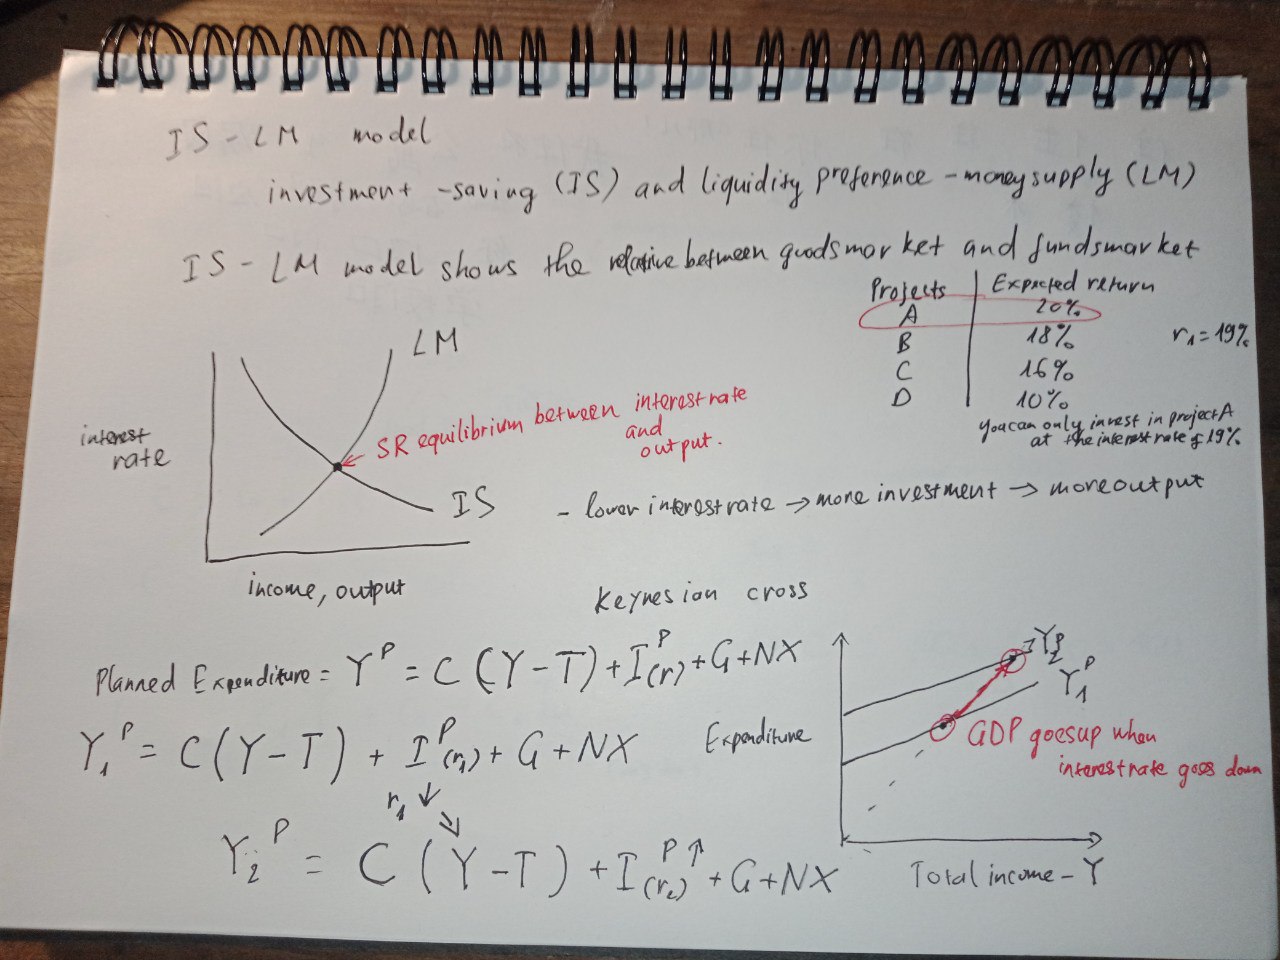 IS-LM model
investment-saving (IS) and liquidity preference-money supply (LM)
IS-LM model shows the relative between goods market and funds market
Projects Expected return
A 20%
B 18%
C 16%
D 10%
r₁=19%
you can only invest in project A
at the interest rate of 19%
LM
SR equilibrium between interest rate
and
output.
interest
rate
IS
income, output
- lower interest rate → more investment → more output
Keynesian cross
Planned Expenditure = Yᴾ = C(Y-T)+Iᴾ(r)+G+NX
Y₁ᴾ = C(Y-T) + Iᴾ(r₁)+G+NX
r₁ ↓
Y₂ᴾ = C(Y-T)+Iᴾ↑(r₂)+G+NX
Y₂ᴾ
Y₁ᴾ
Expenditure
GDP goes up when
interest rate goes down
Total income - Y